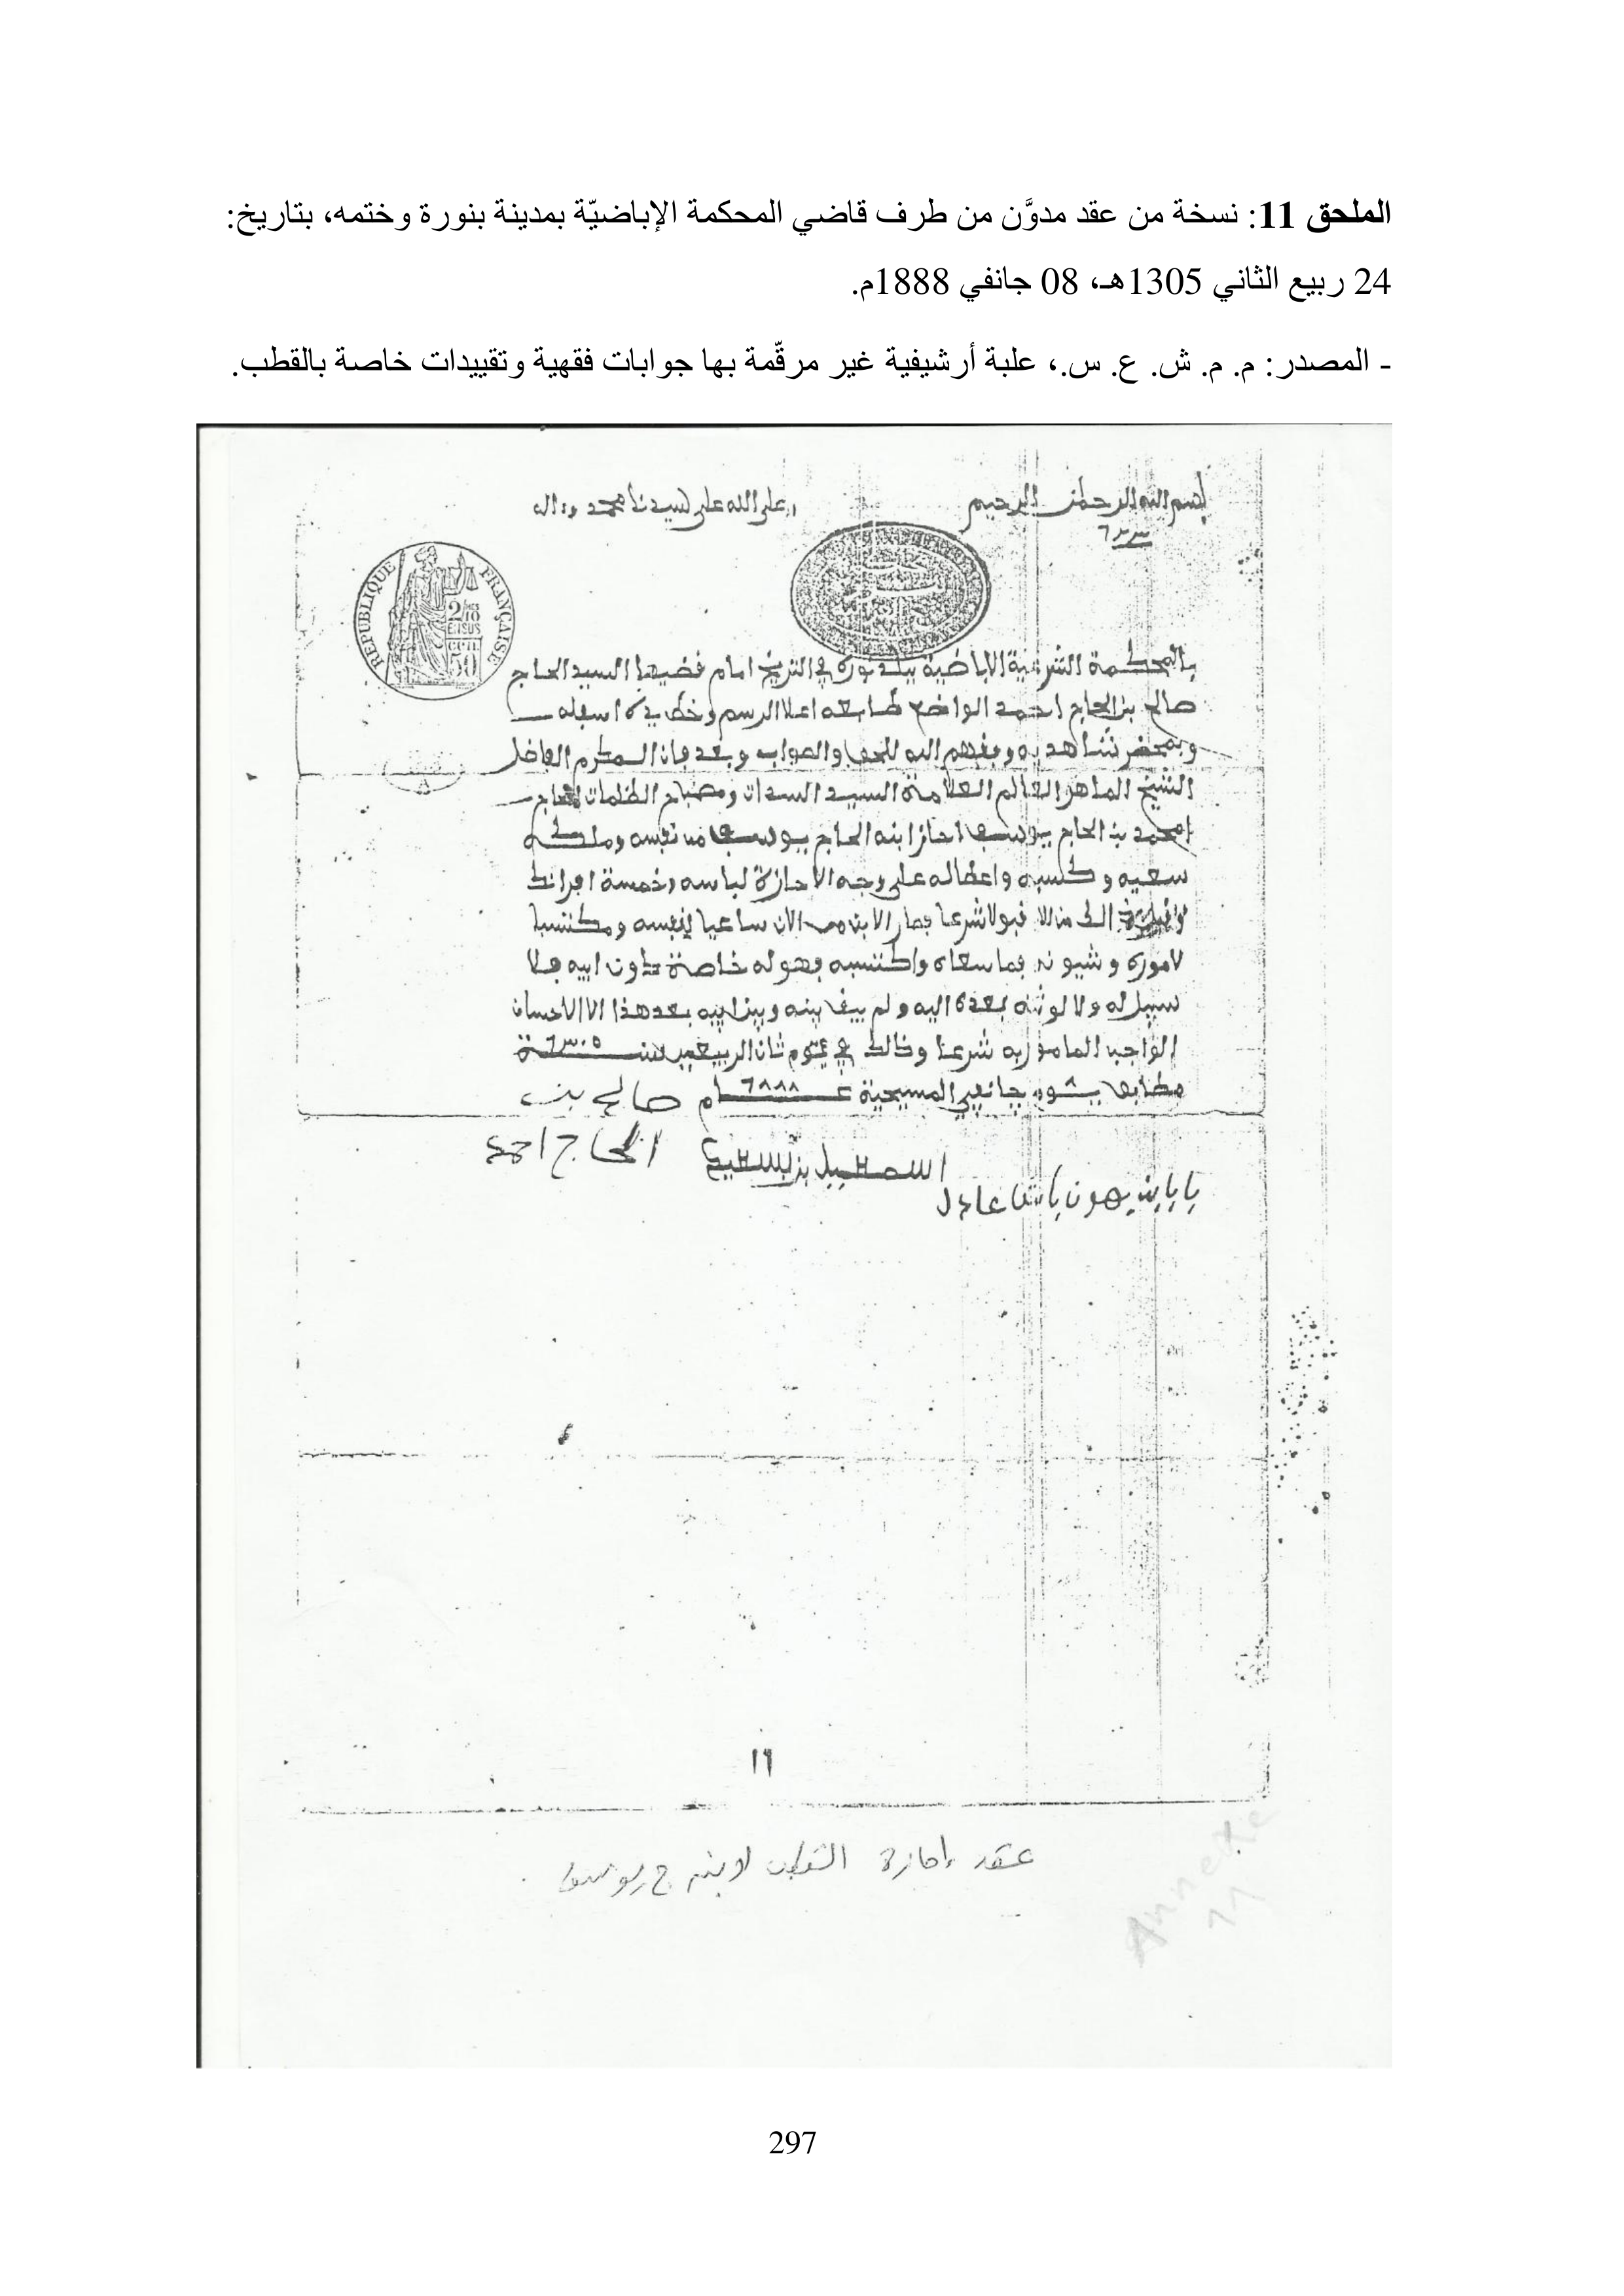 الملحق 11: نسخة من عقد مدوَّن من طرف قاضي المحكمة الإباضيّة بمدينة بنورة وختمه، بتاريخ:
24 ربيع الثاني 1305هـ، 08 جانفي 1888م.
- المصدر: م. م. ش. ع. س.، علبة أرشيفية غير مرقّمة بها جوابات فقهية وتقييدات خاصة بالقطب.
بسم الله الرحمان الرحيم
الله على سيدنا محمد وءاله
REPUBLIQUE FRANÇAISE
2/10 EN SUS
50
بالمحكمة الشرعية الاباضية ببلد بنورة في التريخ امام قضيها السيد الحاج
صالح بن الحاج احمد الواضع طابعه اعلا الرسم وخط يده اسفله
وبمحضر شاهديه وفقهم الله للحق والصواب وبعد فان المكرم الفاضل
الشيخ الماهر العالم العلامة السيد السدات ومصباح الظلمات الحاج
امحمد بن الحاج يوسف احاز ابنه الحاج يوسف من نفسه وملكه
سعيه وكسبه واعطا له على وجه الاحازة لباسه وخمسة افرانك
الى منالا قبولا شرعا فصار الابن من الان ساعيا لنفسه ومكتسبا
لاموره وشيونه فما سعاه واكتسبه فهو له خاصة دون ابيه فلا
سبيل له ولا لورثته بعده اليه ولم يبق بينه وبين ابيه بعد هذا الا الاحسان
الواجب المامور به شرعا وذالك في يوم ثان الربيعين سنة ١٣٠٥
مطابق جانفي المسيحية عام ١٨٨٨ صالح بن
الحاج احمد
اسمعيل بن
بابا بن يهون باشا عادل
١٦
عقد إحازة القطب لابنه ح يوسف
Annexe
11
297